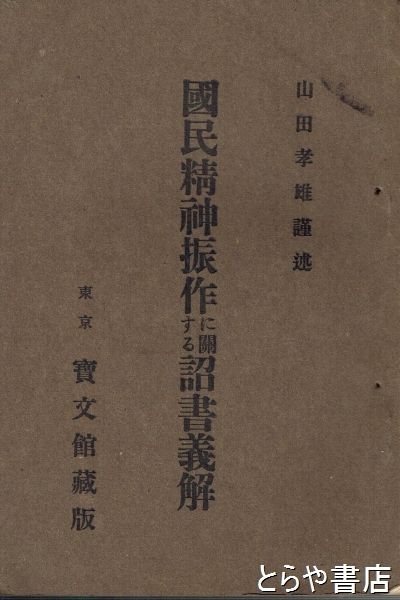 山田孝雄謹述
國民精神振作に關する詔書義解
東京 寶文館藏版
とらや書店